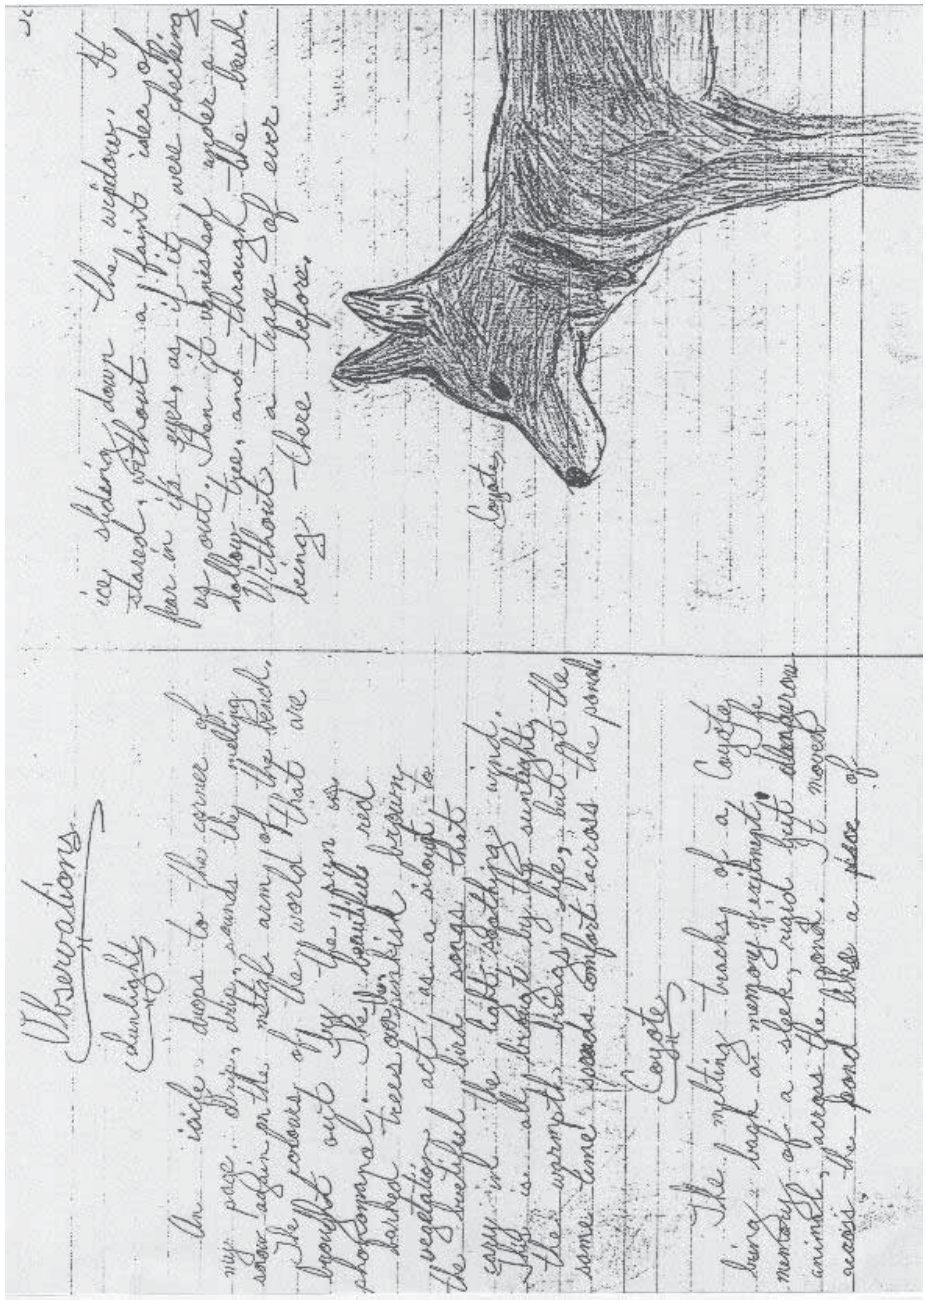 Observations
Sunlight
An icicle drops to the corner of
my page. drip, drip, sounds the melting
snow again on the metal arm of the bench.
The colours of the world that are
brought out by the sun is
phenomenal. The beautiful red
barked trees over the pinkish brown
vegetation act as a silouet to
the beautiful bird songs that
carry in the light, soothing wind.
This is all brought by the sunlight,
the warmpth brings life, but at the
same time spreads comfort across the pond.
Coyote
The melting tracks of a Coyote
bring back a memory of exitment, a
memory of a sleek, rigid but dangerous
animal, across the pond. It moved
across the pond like a peace of
ice, slideing down the window. It
stared, without a faint idec of
fear in it's eyes, as if it were checking
us out. Then it vanished under a
hollow tree, and through the brush.
Without a trace of ever
being there before.
Coyote